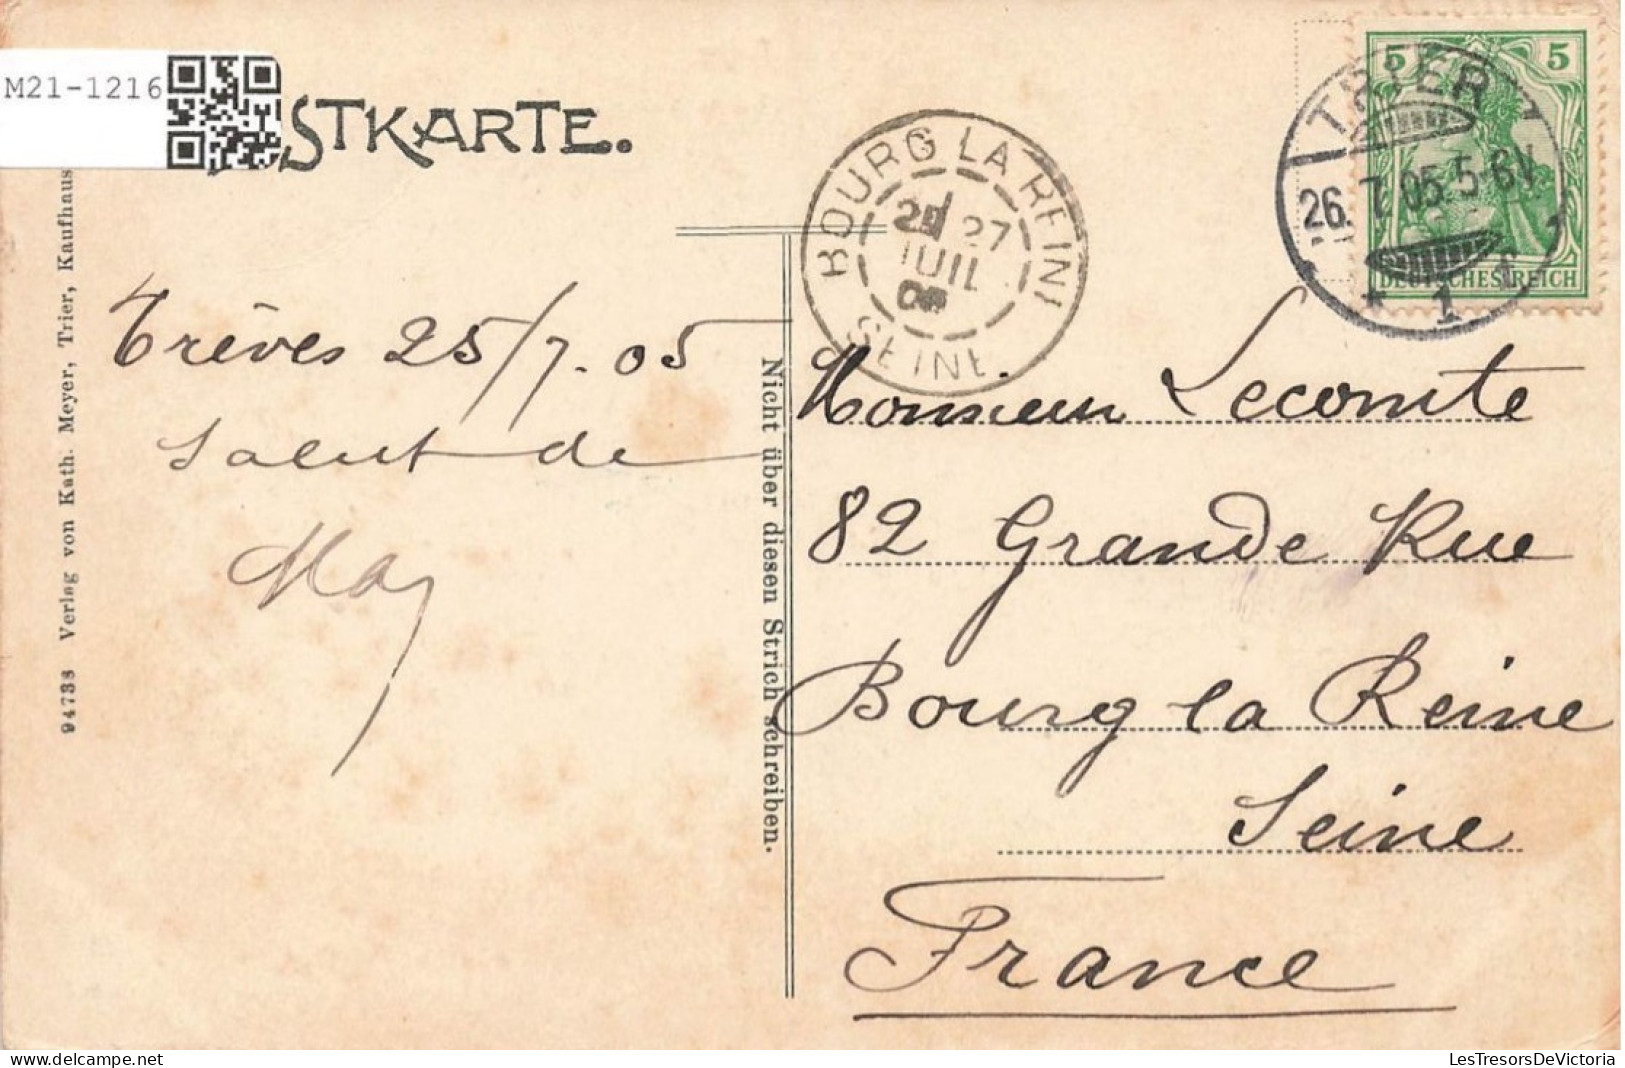 M21-1216
STKARTE.
BOURG LA REINE
27
JUIL
SEINE
5 5
TRIER
26.7.05.5-6N.
* 1 f
DEUTSCHES REICH
Trèves 25/7.05
Salut de
May
Monsieur Lecomte
82 Grande Rue
Bourg la Reine
Seine
France
Nicht über diesen Strich schreiben.
94738 Verlag von Kath. Meyer, Trier, Kaufhaus
LesTresorsDeVictoria